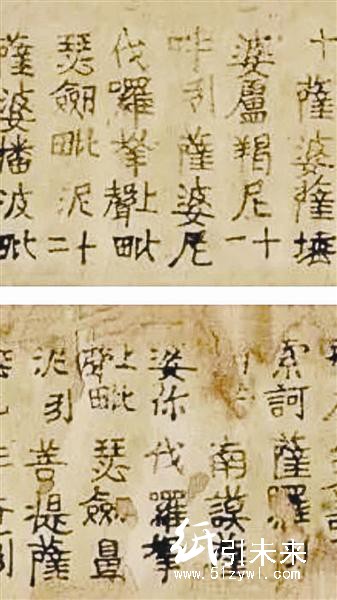 十薩婆薩埵
婆盧羯尼十一
吽引薩婆尼
伐囉拏上聲毗
瑟劒毗泥十二
薩婆播波毗
索訶薩
南謨
婆你伐囉拏
毗瑟劒
泥引菩提薩
纸引未来
www.51zywl.com